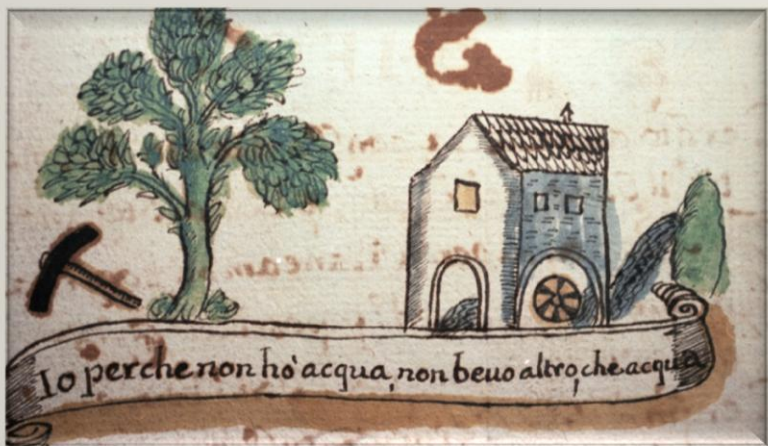 Io perche non ho' acqua, non beuo altro, che acqua